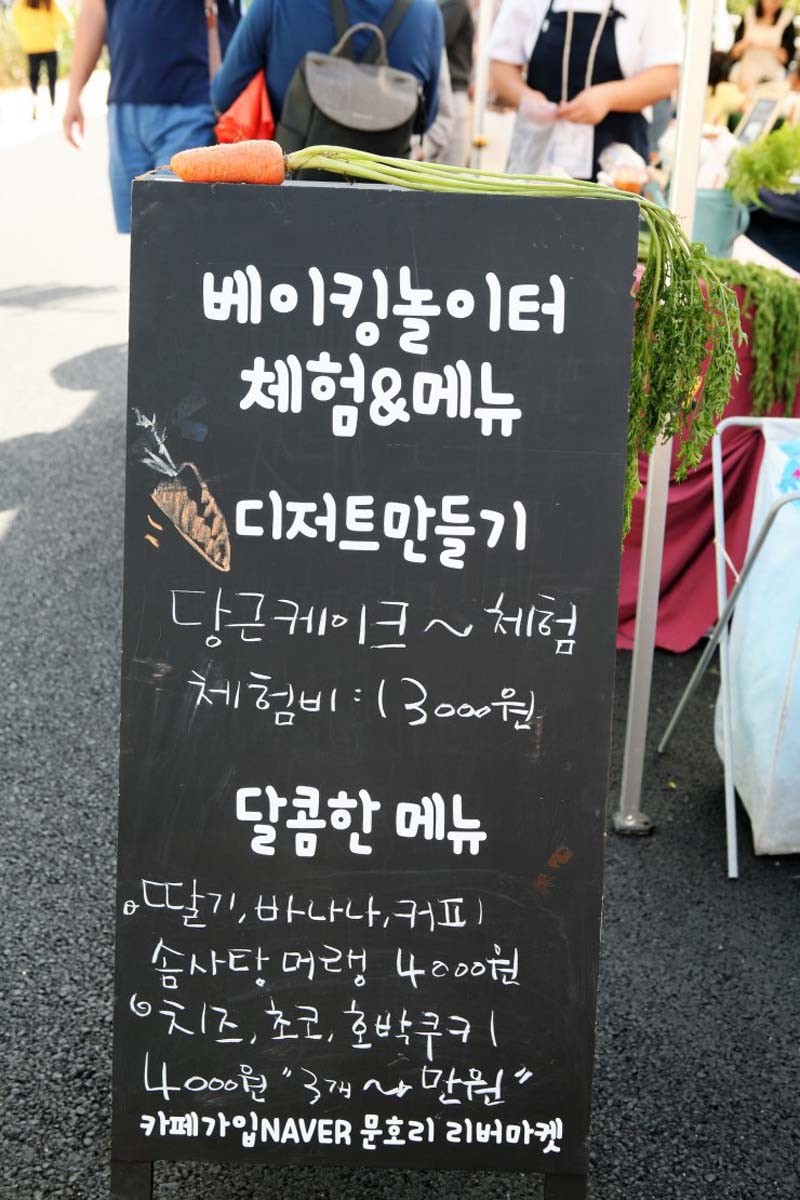 베이킹놀이터
체험&메뉴
디저트만들기
당근케이크~체험
체험비:13000원
달콤한 메뉴
딸기,바나나,커피
솜사탕머랭 4000원
치즈,초코,호박쿠키
4000원 "3개~만원"
카페가입NAVER 문호리 리버마켓